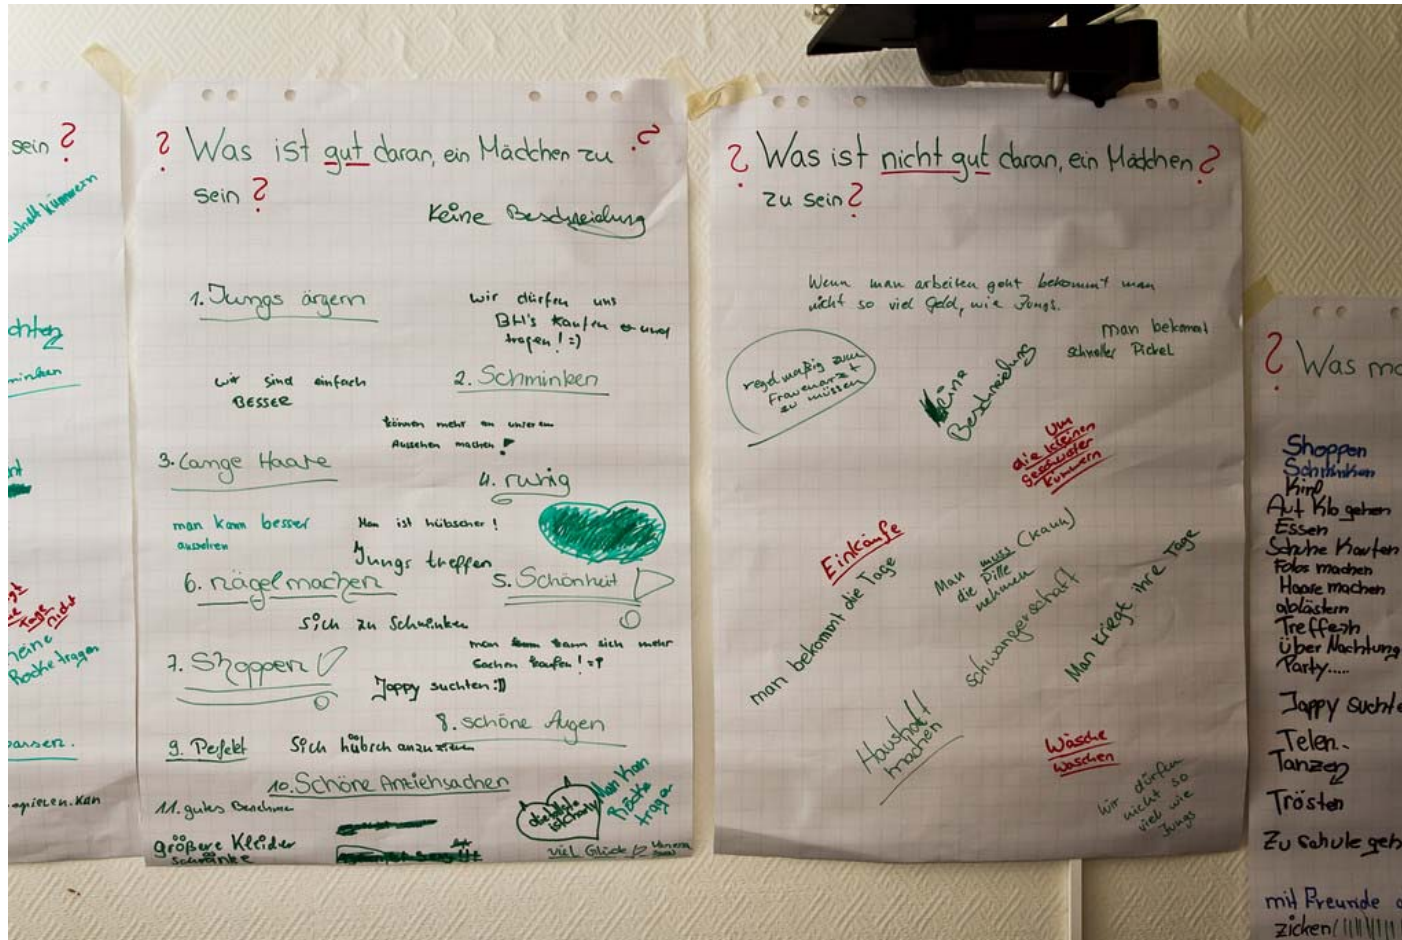 sein ?
kümmern
chten
minken
nicht
Röcke tragen
? Was ist gut daran, ein Mädchen zu ?
sein ?
Keine Beschneidung
1. Jungs ärgern
wir dürfen uns
BH's kaufen und
tragen! :)
wir sind einfach
BESSER
2. Schminken
können mehr an unserem
Aussehen machen!
3. Lange Haare
4. ruhig
man kann besser
aussehen
Man ist hübscher!
Jungs treffen
6. nägel machen
5. Schönheit
Sich zu Schminken
7. Shoppen
man kann sich mehr
Sachen kaufen! =)
Jappy suchten :))
8. schöne Augen
9. Perfekt
Sich hübsch anzuziehen
10. Schöne Anziehsachen
11. gutes Benehmen
größere Kleider
schränke
Man kan
Röcke
tragen
Viel Glück
? Was ist nicht gut daran, ein Mädchen ?
zu sein ?
Wenn man arbeiten geht bekommt man
nicht so viel Geld, wie Jungs.
man bekommt
schneller Pickel
regelmäßig zum
Frauenarzt
zu müssen
Keine
Beschneidung
Um
die kleinen
geschwister
kümmern
Einkäufe
man bekommt die Tage
Man muss (kann)
die Pille
nehmen
schwangerschaft
Man kriegt ihre Tage
Haushalt
machen
Wäsche
waschen
wir dürfen
nicht so
viel wie
Jungs
? Was ma
Shoppen
Schminken
Kino
Auf Klo gehen
Essen
Schuhe Kaufen
Fotos machen
Haare machen
ablästern
Treffen
Über Nachtung
Party.....
Jappy suchte
Telen..
Tanzen
Trösten
Zu schule geh
mit Freunde
zicken